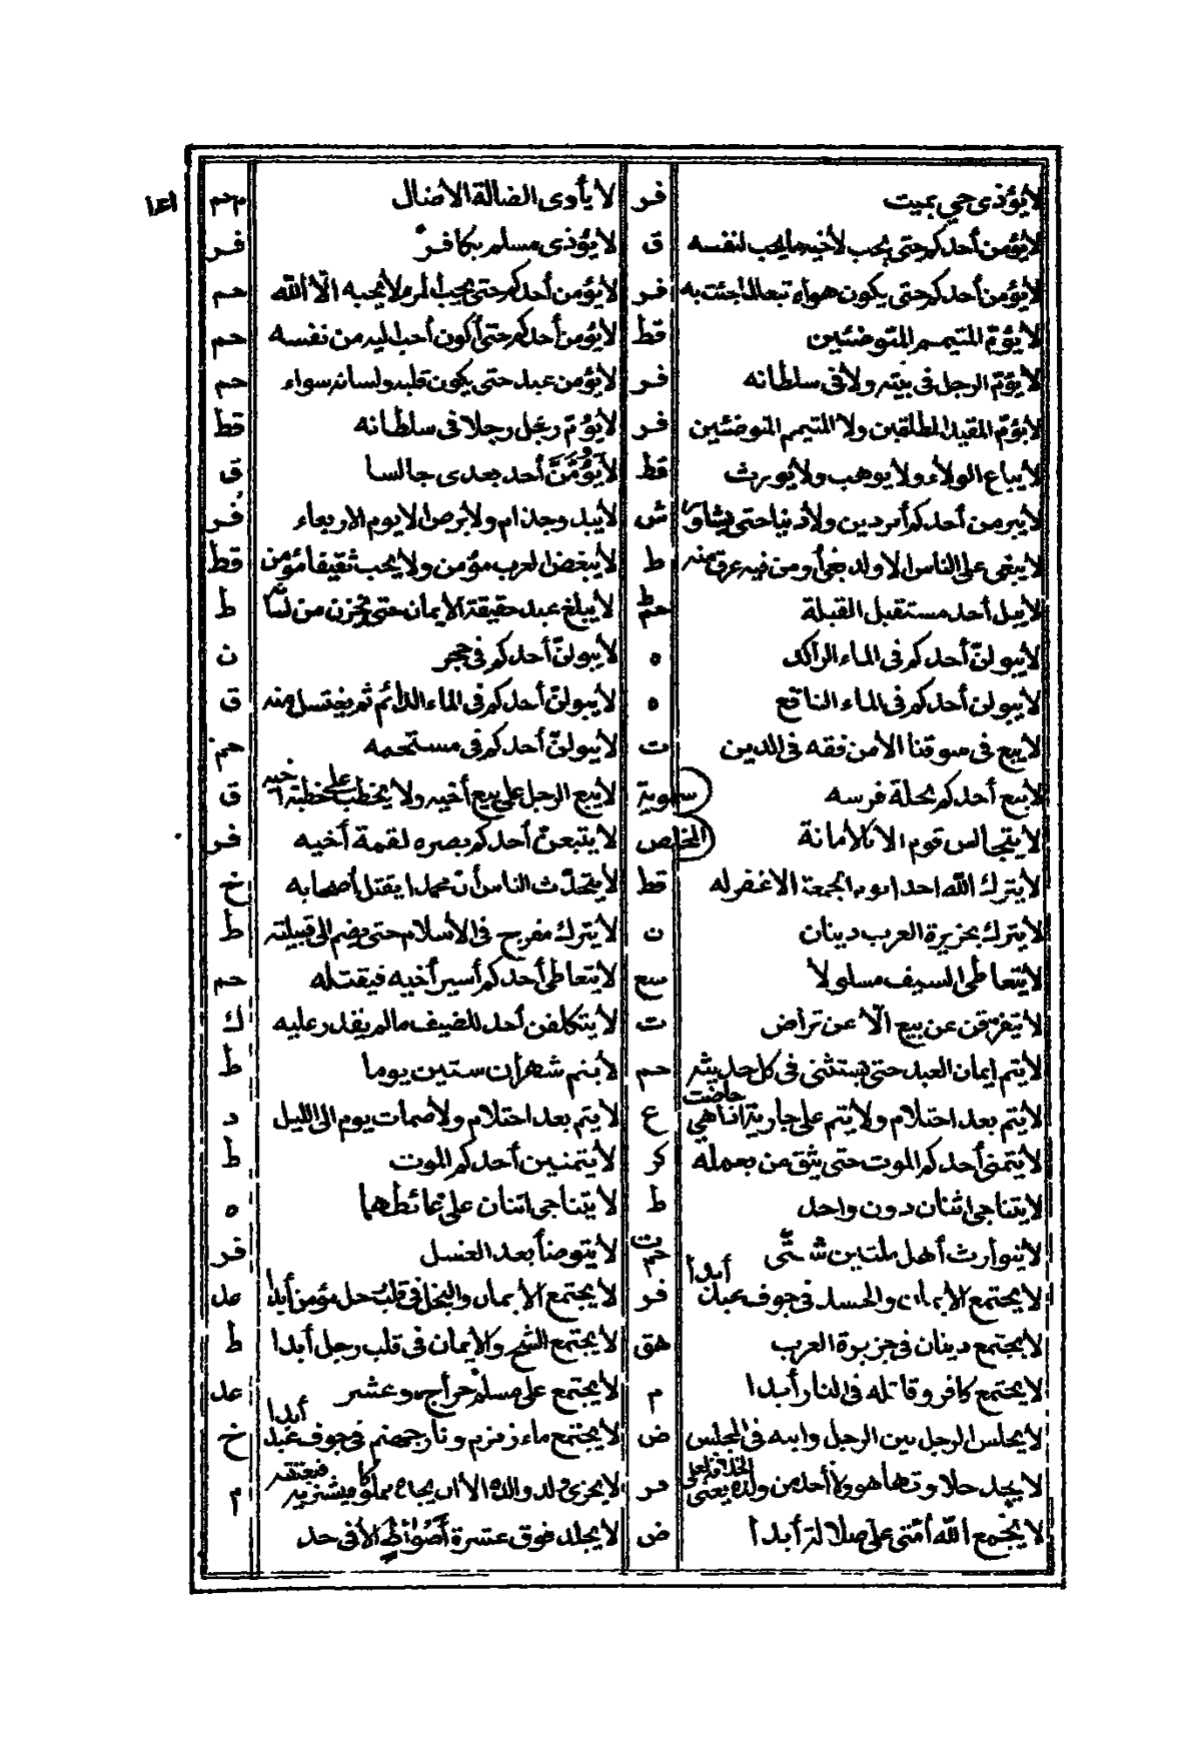 ١٤١
لا يؤذى حي بميت فر لا يأوى الضالة الاضال م حم
لا يؤمن أحدكم حتى يحب لأخيه ما يحب لنفسه ق لا يؤذى مسلم بكافر فر
لا يؤمن أحدكم حتى يكون هواه تبعا لما جئت به فر لا يؤمن أحدكم حتى يحب المرء لا يحبه الا الله حم
لا يؤمّ المتيمم المتوضئين قط لا يؤمن أحدكم حتى أكون أحب اليه من نفسه حم
لا يؤمّ الرجل فى بيته ولا فى سلطانه فر لا يؤمن عبد حتى يكون قلبه ولسانه سواء حم
لا يؤمّ المقيد المطلقين ولا المتيمم المتوضئين فر لا يؤمّ رجل رجلا فى سلطانه قط
لا يباع الولاء ولا يوهب ولا يورث قط لا يؤمّنّ أحد بعدى جالسا ق
لا يبر من أحدكم أمر دين ولا دنيا حتى يشاور ش لا يبدو جذام ولا برص الا يوم الاربعاء فر
لا يبغى على الناس الا ولد بغى أو من فيه عرق منه ط لا يبغض العرب مؤمن ولا يحب ثقيفا مؤمن قط
لا يبل أحد مستقبل القبلة حم ط لا يبلغ عبد حقيقة الايمان حتى يخزن من لسانه ط
لا يبولنّ أحدكم فى الماء الراكد ه لا يبولنّ أحدكم فى جحر ن
لا يبولن أحدكم فى الماء الناقع ه لا يبولنّ أحدكم فى الماء الدائم ثم يغتسل منه ق
لا يبع فى سوقنا الا من فقه فى الدين ت لا يبولنّ أحدكم فى مستحمه حم
لا يبع أحدكم نحلة فرسه سموية لا يبع الرجل على بيع أخيه ولا يخطب على خطبة أخيه ق
لا يتجالس قوم الا بالأمانة المخلص لا يتبعن أحدكم بصره لقمة أخيه فر
لا يترك الله احدا يوم الجمعة الا غفر له قط لا يتحدّث الناس أن محمدا يقتل أصحابه خ
لا يترك بجزيرة العرب دينان ن لا يترك مفرج فى الأسلام حتى يضم الى قبيلته ط
لا يتعاطى السيف مسلولا سع لا يتعاطى أحدكم أسير أخيه فيقتله حم
لا يتفرّقن عن بيع الّا عن تراض ت لا يتكلفن أحد للضيف ما لم يقدر عليه ك
لا يتم ايمان العبد حتى يستثنى فى كل حديثه حم لا يتم شهران ستين يوما ط
لا يتم بعد احتلام ولا يتم على جارية اذا هي حاضت ع لا يتم بعد احتلام ولا صمات يوم الى الليل د
لا يتمنى أحدكم الموت حتى يثق من بعمله كر لا يتمنين أحدكم الموت ط
لا يتناجى اثنان دون واحد ط لا يتناجى اثنان على غائطهما ه
لا يتوارث أهل ملتين شتّى حم ت لا يتوضأ بعد الغسل فر
لا يجتمع الايمان والحسد فى جوف عبد أبدا فر لا يجتمع الايمان والبخل فى قلب رجل مؤمن أبدا عد
لا يجتمع دينان فى جزيرة العرب هق لا يجتمع الشح والايمان فى قلب رجل أبدا ط
لا يجتمع كافر وقاتله فى النار أبدا م لا يجتمع على مسلم خراج وعشر عد
لا يجلس الرجل بين الرجل وابنه فى المجلس ض لا يجتمع ماء زمزم ونار جهنم فى جوف عبد أبدا خ
لا يجد حلاوتها هو ولا أحد من ولده يعنى الخلافة لعلى فر لا يجزى ولد والده الا أن يجده مملوكا فيشتريه فيعتقه م
لا يجمع الله أمّتى على ضلالة أبدا ض لا يجلد فوق عشرة أسواط الا فى حد